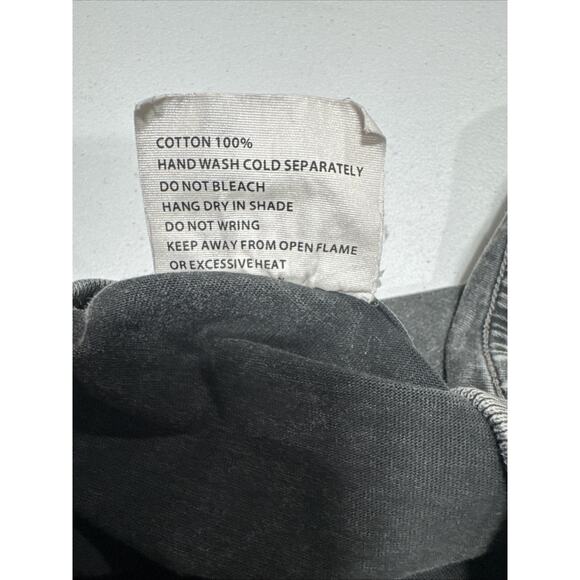 COTTON 100%
HAND WASH COLD SEPARATELY
DO NOT BLEACH
HANG DRY IN SHADE
DO NOT WRING
KEEP AWAY FROM OPEN FLAME
OR EXCESSIVE HEAT